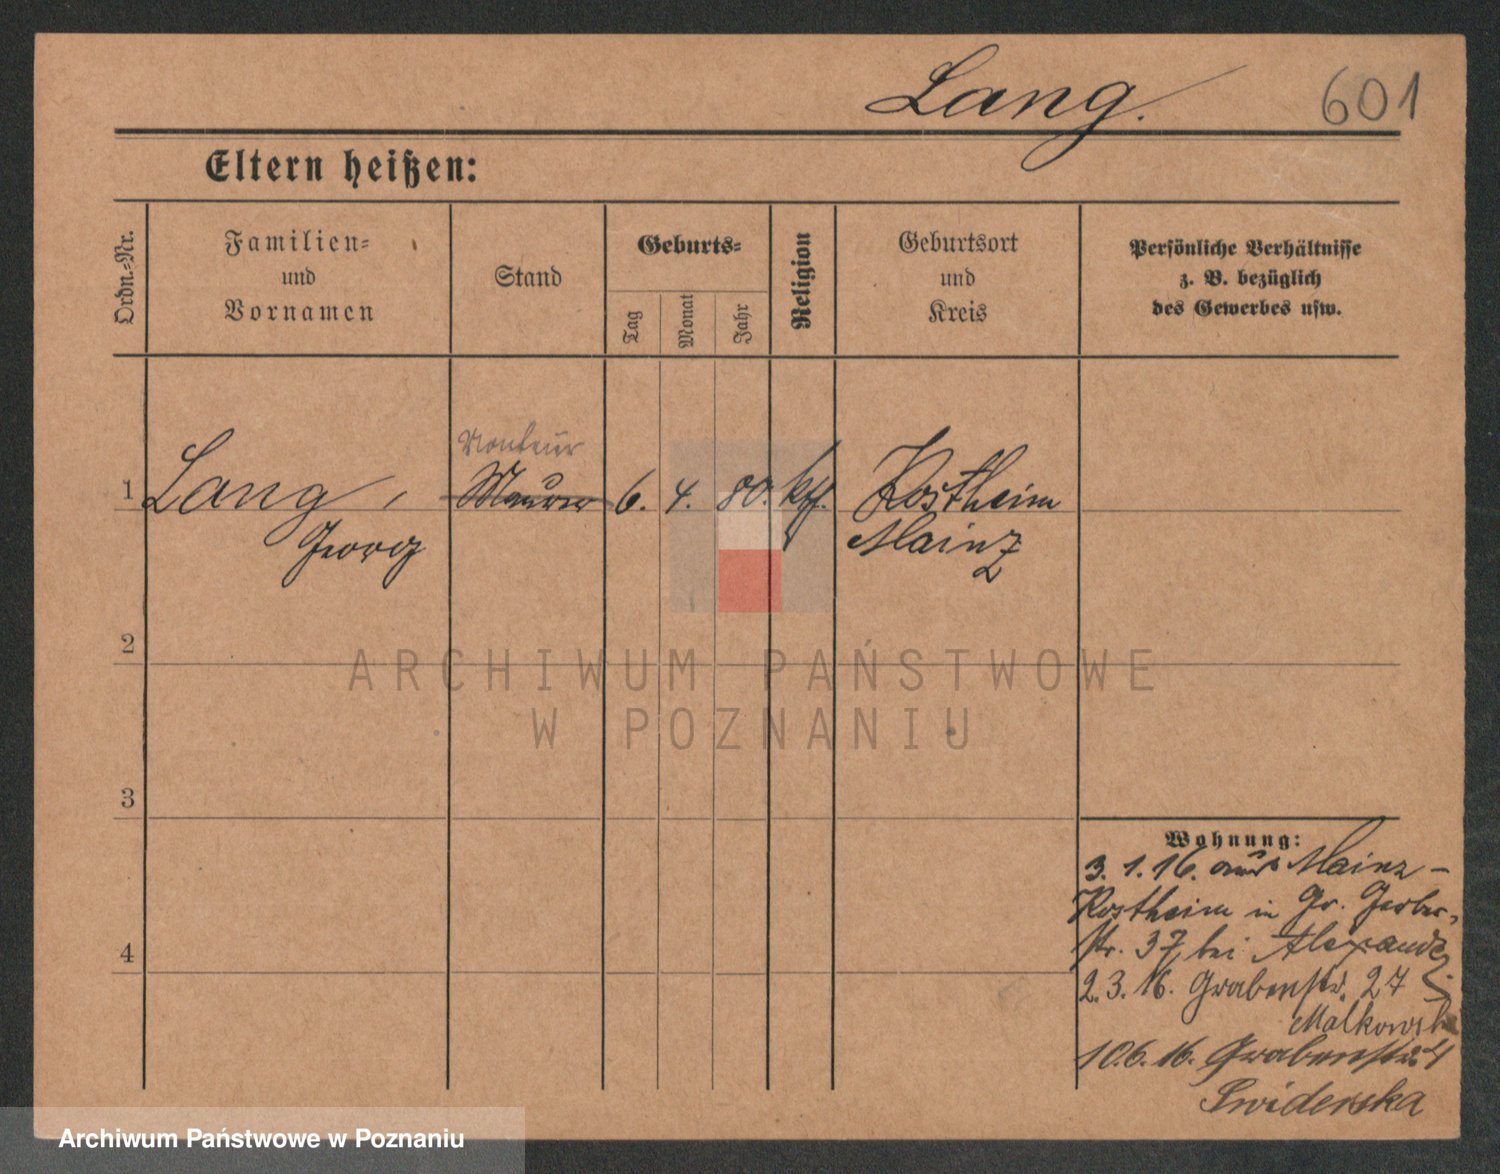 Lang.
601
Eltern heißen:
Ordn.-Nr.
Familien-
und
Vornamen
Stand
Geburts-
Tag
Monat
Jahr
Religion
Geburtsort
und
Kreis
Persönliche Verhältnisse
z. B. bezüglich
des Gewerbes usw.
Monteur
1 Lang, Maurer 6. 4. 80. kth. Kostheim
Georg Mainz
2
3
4
Wohnung:
3. 1. 16. aus Mainz-
Kostheim in Gr. Gerber-
str. 37 bei Alexander
2. 3. 16. Grabenstr. 27
Malkowski
10.6.16. Grabenstr. 24
Swiderska
ARCHIWUM PAŃSTWOWE
W POZNANIU
Archiwum Państwowe w Poznaniu